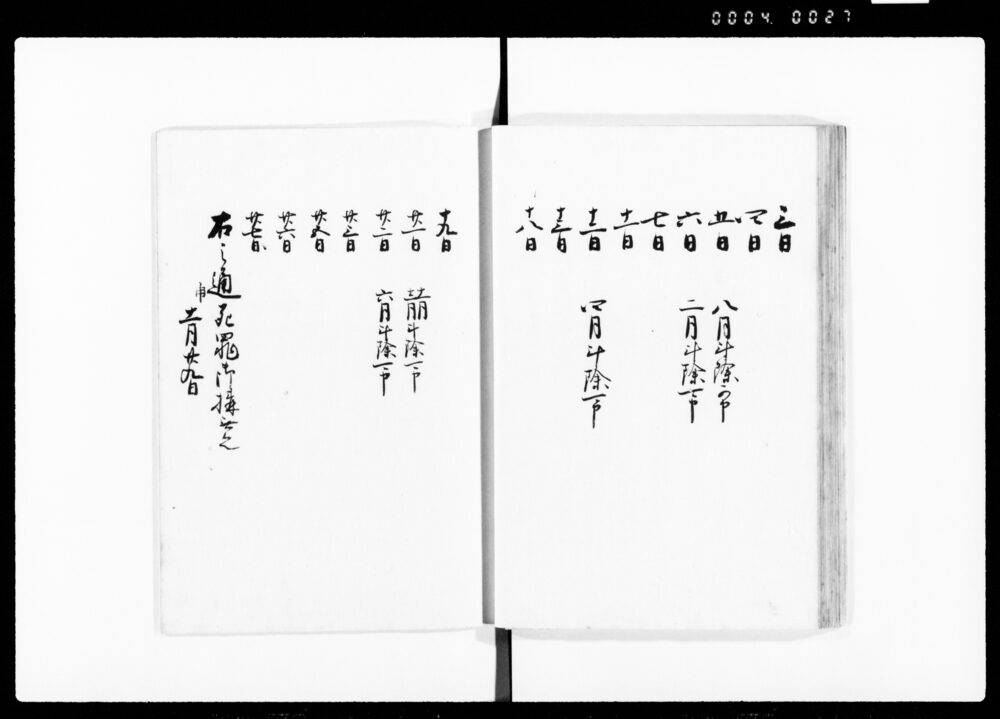 0004 0027
三日
四日
五日 八月斗除ク
六日 二月斗除ク
七日
十一日
十二日 四月斗除ク
十三日
十八日
十九日
廿一日 斗除ク
廿二日 六月斗除ク
廿三日
廿五日
廿六日
廿七日
右之通死罪御構無之
申
十一月廿九日